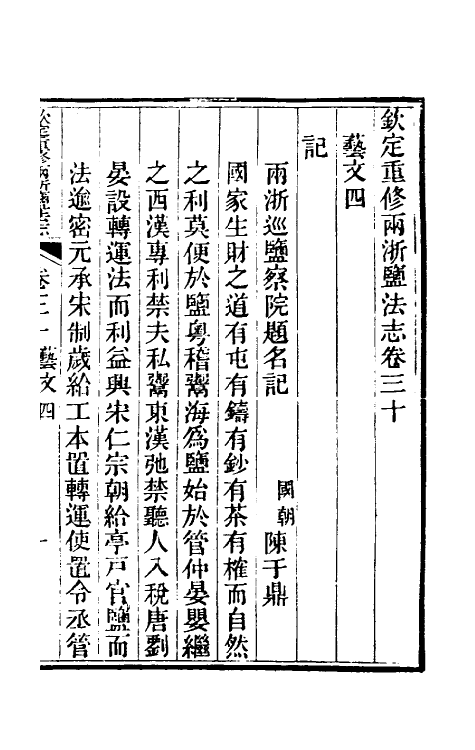 欽定重修兩浙鹽法志卷三十
藝文四
記
兩浙巡鹽察院題名記 國朝陳于鼎
國家生財之道有屯有鑄有鈔有茶有榷而自然
之利莫便於鹽粵稽鬻海爲鹽始於管仲晏嬰繼
之西漢專利禁夫私鬻東漢弛禁聽人入稅唐劉
晏設轉運法而利益興宋仁宗朝給亭戸官鹽而
法逾密元承宋制歲給工本置轉運使置令丞管
欽定重修兩浙鹽法志 卷三十 藝文四 一